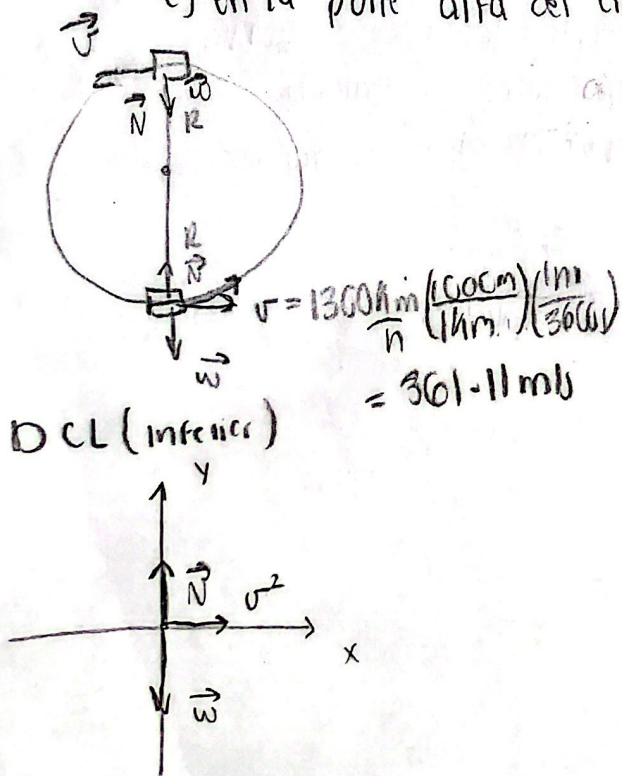 en la parte alta del
v⃗
N⃗ w⃗
R
R
N⃗
v = 1300 km/h (1000m/1km) (1h/3600s)
= 361.11 m/s
w⃗
DCL (inferior)
y
N⃗ v²
x
w⃗